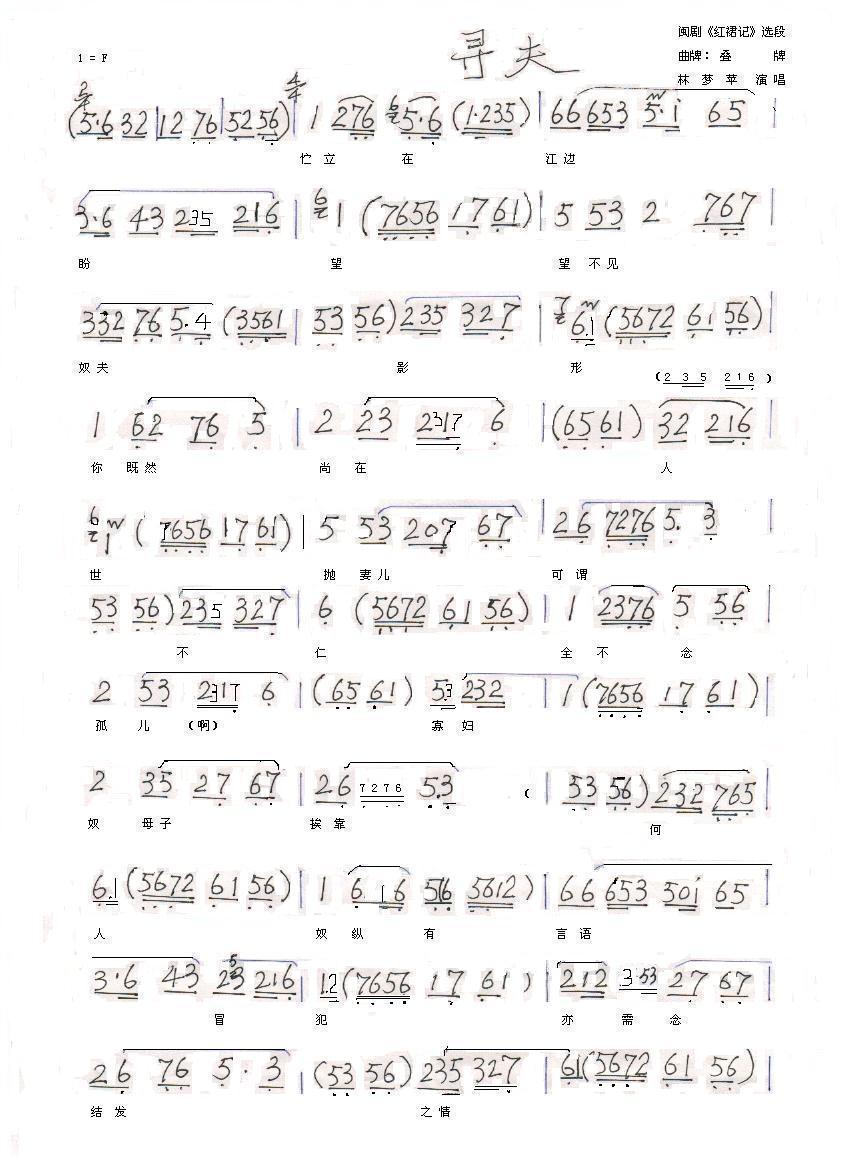 寻夫
闽剧《红裙记》选段
曲牌：叠 牌
林 梦 苹 演唱
1 = F
2/4 4/4
(5·6 32 | 12 76 | 52 56) | 1 276 6 5·6 (1·235) | 66 653 5·i 65
伫 立 在 江 边
3·6 43 235 216 | 6 1 (7656 17 61) | 5 53 2 767 |
盼 望 望 不 见
332 76 5·4 (3561 | 53 56) 235 327 | 7 6.1 (5672 61 56) |
奴 夫 影 形
(2 3 5 2 1 6)
1 62 76 5 | 2 23 2317 6 | (65 61) 32 216 |
你 既 然 尚 在 人
6 1 (7656 17 61) | 5 53 207 67 | 26 7276 5. 3
世 抛 妻 儿 可 谓
53 56) 235 327 | 6 (5672 61 56) | 1 2376 5 56 |
不 仁 全 不 念
2 53 2317 6 | (65 61) 53 232 | 1 (7656 17 61) |
孤 儿 (啊) 寡 妇
2 35 27 67 | 26 7276 5.3 ( | 53 56) 232 765 |
奴 母 子 挨 靠 何
6.1 (5672 61 56) | 1 6.16 516 5612) | 66 653 50i 65 |
人 奴 纵 有 言 语
3·6 43 5 23 216 | 1.2 (7656 17 61) | 212 3·53 27 67 |
冒 犯 亦 需 念
26 76 5·3 | (53 56) 235 327 | 61 (5672 61 56) |
结 发 之 情